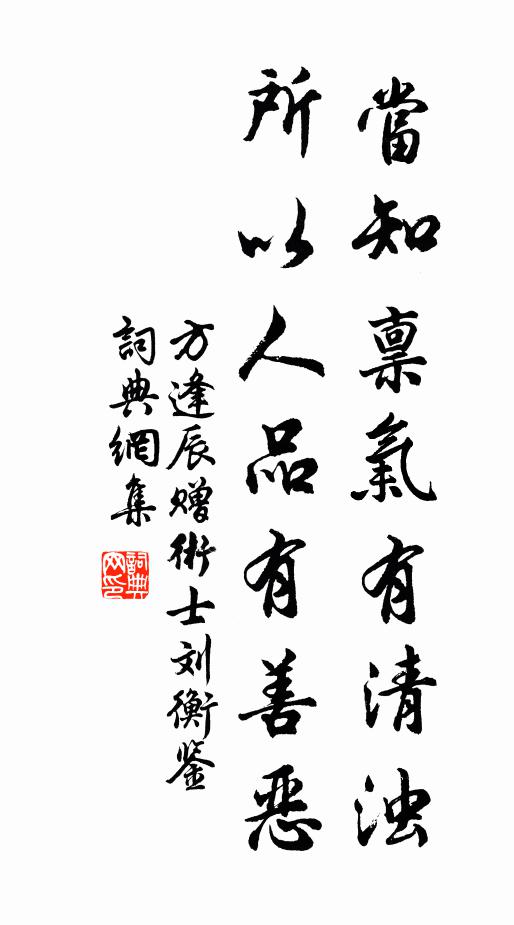 當知禀氣有清浊
所以人品有善惡
方逢辰赠術士刘衡鉴
詞典網集
詞典网印